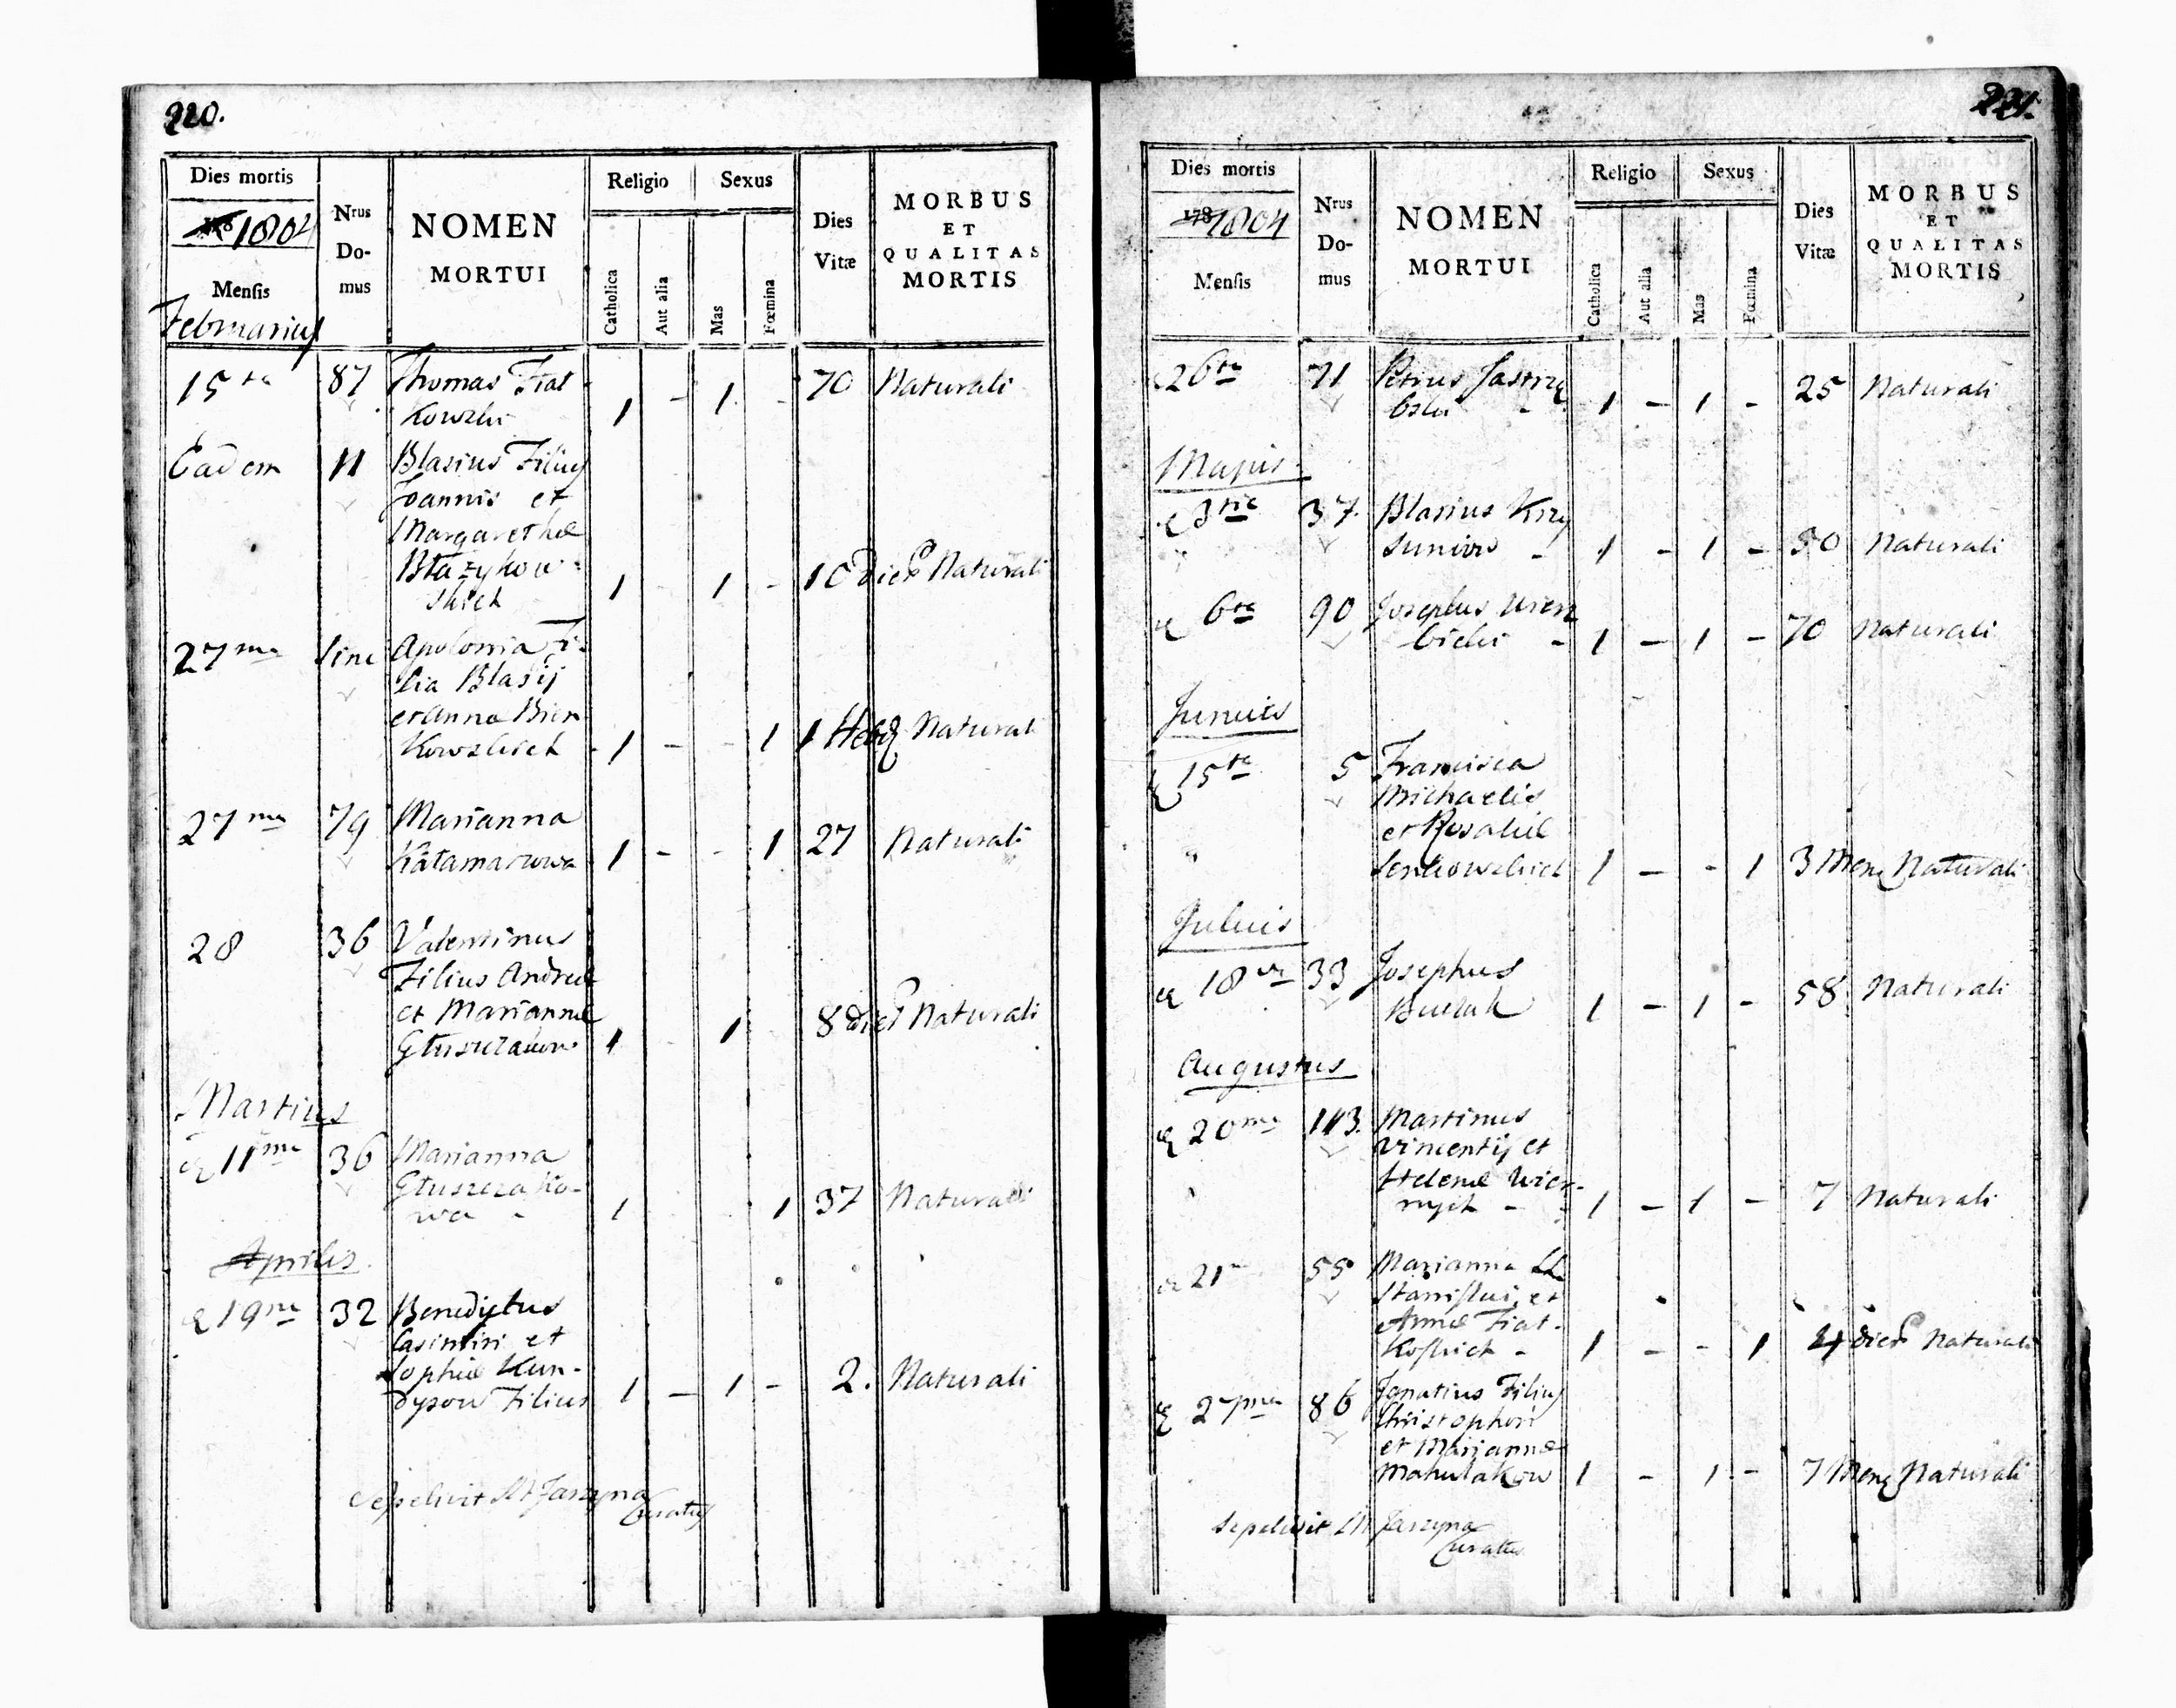 220.
Dies mortis
1804
Mensis
Februarius
Nrus
Do-
mus
NOMEN
MORTUI
Religio
Catholica
Aut alia
Sexus
Mas
Fœmina
Dies
Vitæ
MORBUS
ET
QUALITAS
MORTIS
15ta 87 Thomas Fiał
kowski 1 - 1 - 70 Naturali
Eadem 11 Blasius Filius
Joannis et
Margarethæ
Błazykow
skich 1 1 - 10 dies Naturali
27ma sine Apolonia Fi-
lia Blasij
et Anna Bien
kowskich 1 - - 1 1 Naturali
27ma 79 Marianna
1 - - 1 27 Naturali
28 36 Valentinus
Filius Andreæ
et Mariannæ
Głuszczakow 1 1 8 dies Naturali
Martius
11ma 36 Marianna
Głuszczako-
wa - 1 1 37 Naturali
Aprilis
19na 32 Benedyktus
Casimiri et
Sophiæ Kun-
dysow Filius 1 - 1 - 2. Naturali
Sepelivit M Jarzyna
Curatus
221.
Dies mortis
178 1804
Mensis
Nrus
Do-
mus
NOMEN
MORTUI
Religio
Catholica
Aut alia
Sexus
Mas
Fœmina
Dies
Vitæ
MORBUS
ET
QUALITAS
MORTIS
26ta 71 Petrus Jastrzę
bski - 1 - 1 - 25 Naturali
Majus
3tia 37. Blasius Krzy
- 1 - 1 - 50 Naturali
6ta 90 Josephus Wierz
bicki - 1 - 1 - 70 Naturali
Junius
15ta 5 Francisca
Michaelis
et Rosaliæ
Senkowskich 1 - - 1 3 Mens Naturali
Julius
18va 33 Josephus
1 - 1 - 58 Naturali
Augustus
20ma 113. Martinus
Vincentij et
Helenæ Wier-
nych - 1 - 1 - 7 Naturali
21 55 Marianna
Stanislai et
Annæ Fiał-
koskich - 1 - - 1 4 dies Naturali
27ma 86 Ignatius Filius
Christophori
et Mariannæ
Matulakow 1 - 1 - 7 Mens Naturali
Sepelivit M Jarzyna
Curatus